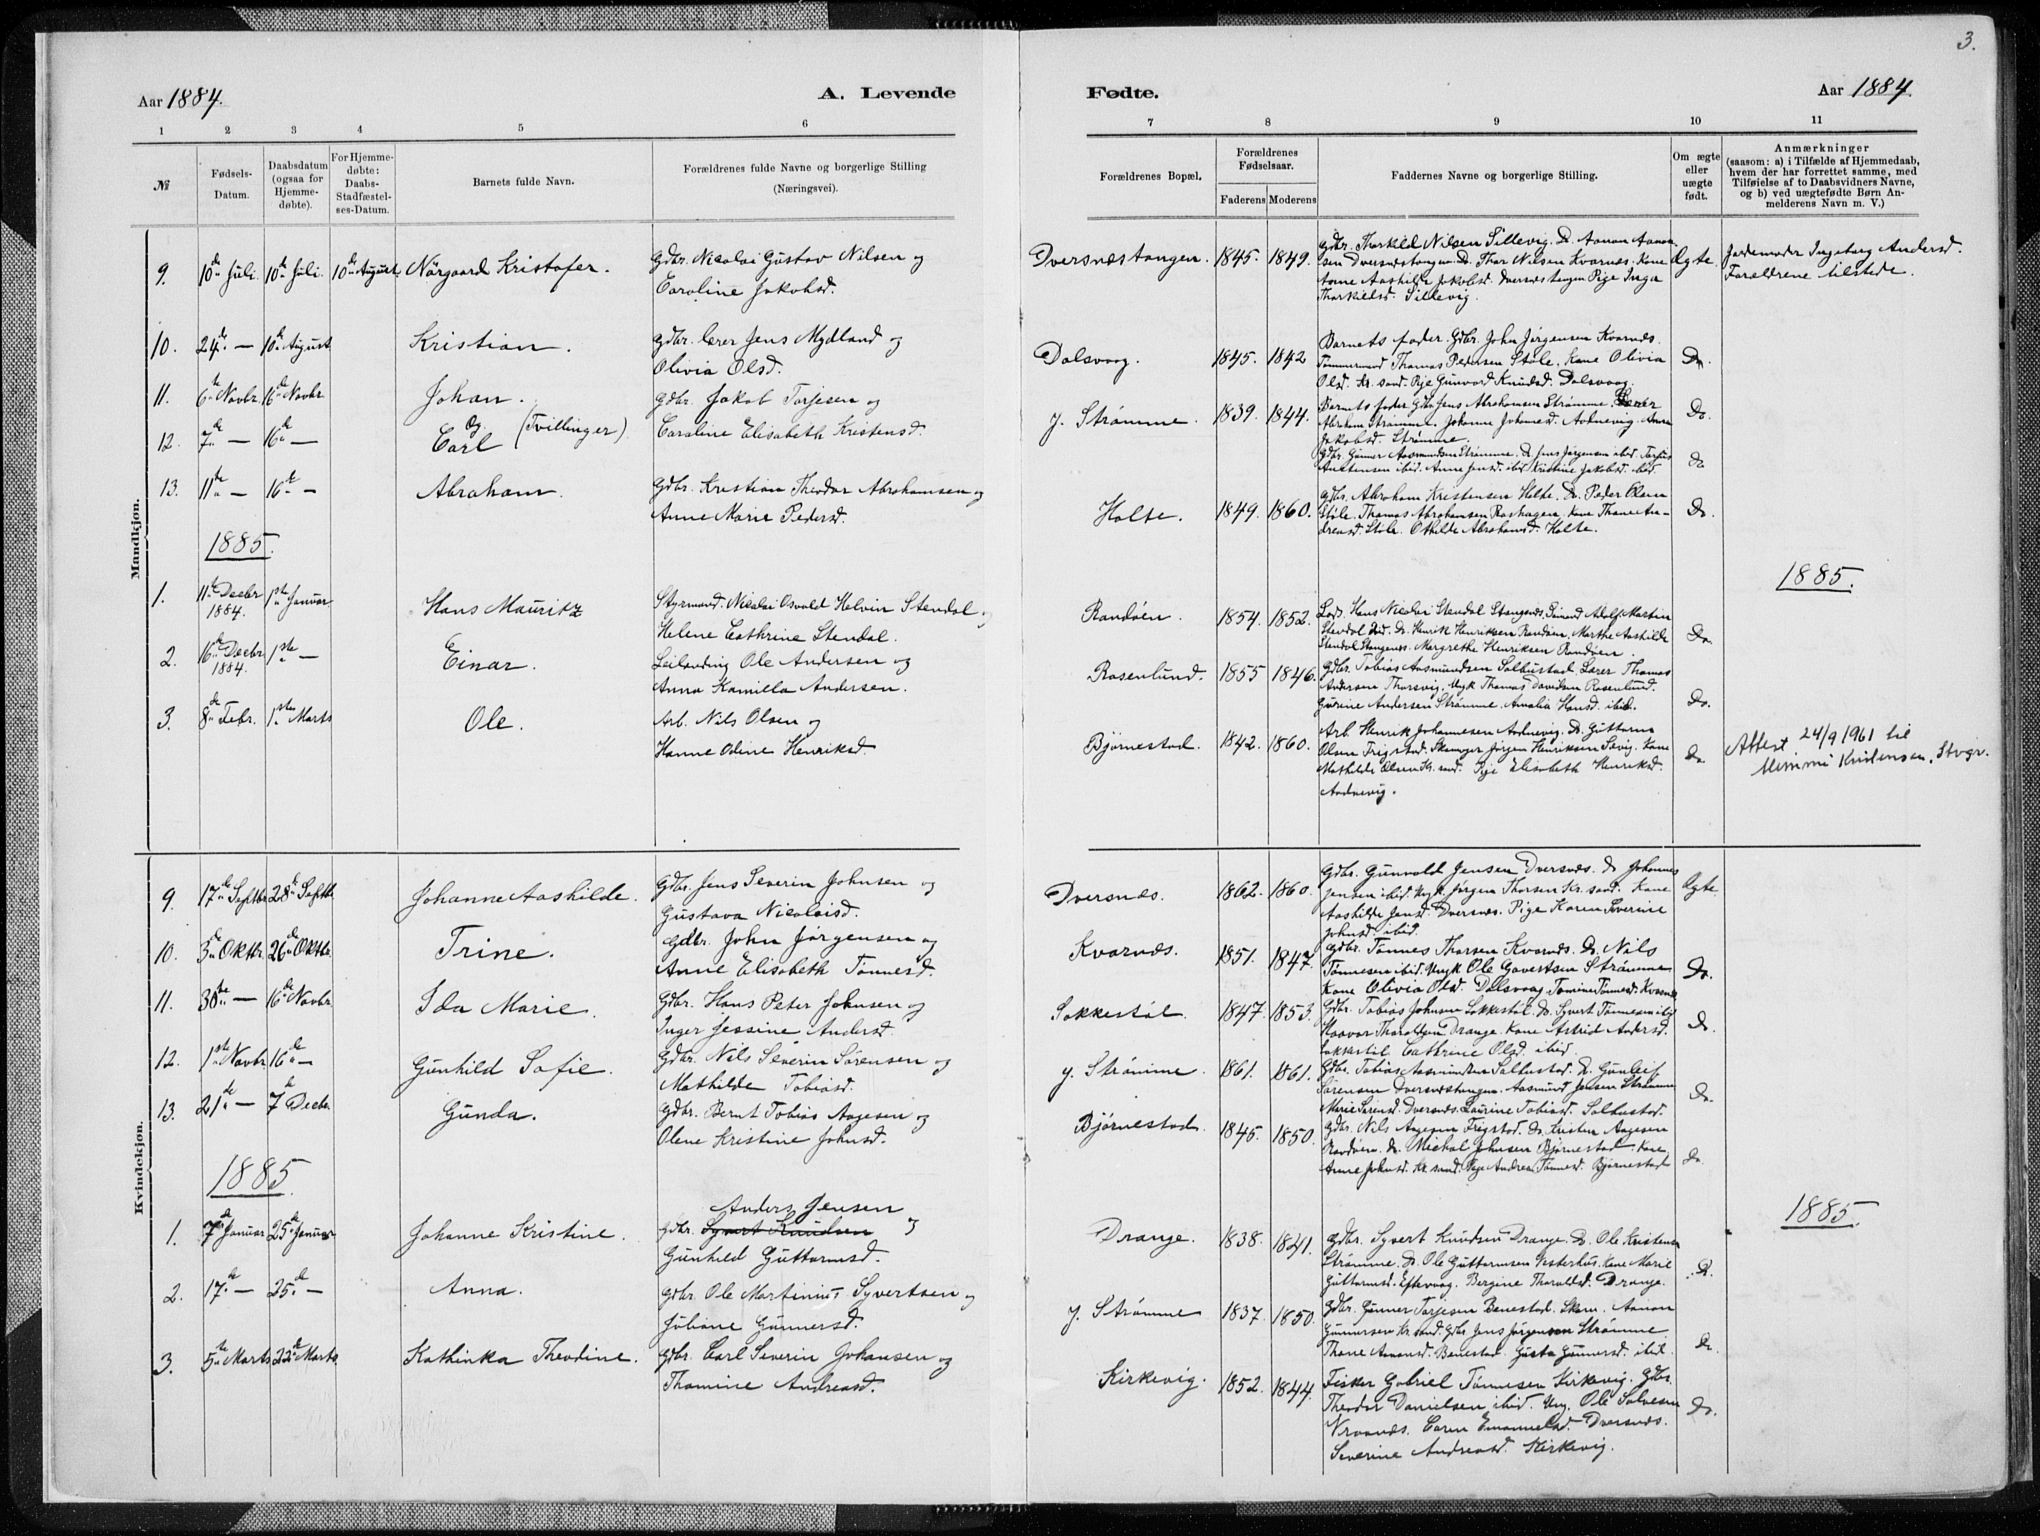 3.
Aar 1884.
A. Levende
Fødte.
Aar 1884.
1 2 3 4 5 6 7 8 9 10 11
№
Fødsels-
Datum.
Daabsdatum
(ogsaa for
Hjemme-
døbte).
For Hjemme-
døbte:
Daabs-
Stadfæstel-
ses-Datum.
Barnets fulde Navn.
Forældrenes fulde Navne og borgerlige Stilling
(Næringsvei).
Forældrenes Bopæl.
Forældrenes
Fødselsaar.
Faderens Moderens
Faddernes Navne og borgerlige Stilling.
Om ægte
eller
uægte
født.
Anmærkninger
(saasom: a) i Tilfælde af Hjemmedaab,
hvem der har forrettet samme, med
Tilføielse af to Daabsvidners Navne,
og b) ved uægtefødte Børn An-
melderens Navn m. V.)
Mandkjøn.
9. 10de Juli 10de Juli 10de August Nörgaard Kristofer. Gdbr. Nicolai Gustav Nilsen og
Caroline Jakobsd.
Dversnæstangen. 1845. 1849. Gdbr. Thorkild Nilsen Sillevig. Do. Aanon Aanon-
sen Dversnæstangen. Do. Thor Nilsen Kvarnæs. Kone
Anne Aashilde Jakobsd. Dversnæstangen Pige Inga
Thorkildsd. Sillevig.
Ægte. Jordemoder Ingeborg Andersd.
Forældrene tilstede.
10. 24de — 10de August Kristian. Gdbr. lærer Jens Mydland og
Olivia Olsd.
Dalsvaag. 1845. 1842 Barnets fader. Gdbr. John Jörgensen Kvarnæs.
Tømmermand Thomas Pedersen Støle. Kone Olivia
Olsd. Kr. sand. Pige Gunvord Knudsd. Dalsvaag. Do.
11. 6te Novbr. 16de Novbr. Johan. Gdbr. Jakob Torjesen og
og (Tvillinger)
12. 7de — 16de — Carl Caroline Elisabeth Kristensd.
y. Strømme. 1839. 1844. Barnets fader. Gdbr. Jens Abrahamsen Strømme.
Abraham Strømme. Johanne Johannesd. Aannevig. Anne
Jakobsd. Strømme. Do.
Gdbr. Gunner Aasmundsen Strømme. Do. Jens Jørgensen ibid. Terjus
Austensen ibid. Anne Jensd. ibid Kristine Jakobsd. ibid. do
13. 11te — 16de — Abraham. Gdbr. Kristian Theodor Abrahamsen og
Anne Marie Pedersd.
Holte. 1849. 1860. Gdbr. Abraham Kristensen Holte. Do. Peder Olsen
Støle. Thomas Abrahamsen Roshagen. Kone Thone An-
dreasd. Støle. Othilde Abrahamsd. Holte. Do.
1885.
1885.
1. 11te Decbr 1884. 1ste Januar Hans Mauritz Styrmand. Nicolai Osvald Helvin Stendal og
Helene Cathrine Stendal.
Randøen. 1854. 1852. Lods. Hans Nicolai Stendal Stangenæs. Sömand Adolf Martin
Stendal ibid. Do. Henrik Henriksen Randøen. Marthe Aashilde
Stendal Stangenæs. Margrethe Henriksen Randøen. Do.
2. 16de Decbr 1884. 1ste — Einar. Leilænding Ole Andersen og
Anna Kamilla Andersen.
Rosenlund. 1855 1846. Gdbr. Tobias Aasmundsen Salbustad Lærer Thomas
Andersen Thorsvig. Ungk Thomas Davidsen Rosenlund.
Gurine Andersen Strømme. Amalia Hansd. ibid. Do.
3. 8de Febr. 1ste Marts Ole. Arb. Nils Olsen og
Hanne Odine Henriksd.
Bjørnestad. 1842. 1860. Arb Henrik Johannesen Aadnevig. Do. Guttorm
Olsen Frigstad. Skomager Jörgen Henriksen Søvig. Kone
Mathilde Olsen Kr. sand. Pige Elisabeth Henriksd.
Aadnevig. do Attest 24/9 1961 til
Mimmi Kristensen, Stvgr.
Kvindekjøn.
9. 17de Septbr 28de Septbr Johanne Aashilde. Gdbr. Jens Severin Johnsen og
Gustava Nicolaisd.
Dversnæs. 1862. 1860. Gdbr. Gunvald Jensen Dversnæs. do Johannes
Jensen ibid. Ungk. Jörgen Thorsen Kr. sand. Kone
Aashilde Jensd. Dversnæs. Pige Karen Severine
Johnsd. ibid. Ægte.
10. 3de Oktbr. 26de Oktbr. Trine. Gdbr. John Jørgensen og
Anne Elisabeth Tönnesd.
Kvarnæs. 1851. 1847. Gdbr. Tønnes Thorsen Kvarnæs. Do. Nils
Tønnesen ibid. Ungk Ole Govertsen Strømme
Kone Olivia Olsd. Dalsvaag. Tomine Tønnesd. Kvarnæs Do.
11. 30te — 16de Novbr. Ida Marie. Gdbr. Hans Peter Johnsen og
Inger Jessine Andersd.
Sokkestøl. 1847. 1853. Gdbr. Tobias Johnsen Sokkestøl. Do. Syvert Tønnesen ibid
Haavor Tharaldsen Drange. Kone Astrid Andersd.
Sokkestöl. Cathrine Olsd. ibid. Do.
12. 1ste Novbr 16de — Gunhild Sofie. Gdbr. Nils Severin Sørensen og
Mathilde Tobiasd.
y. Strømme. 1861. 1861. Gdbr. Tobias Aasmundsen Salbustad. Do. Gunleif
Sørensen Dversnæstangen. Aasmund Jensen Strømme
Marie Sørensd. Dversnæs. Laurine Tobiasd. Salbustad. Do.
13. 21de — 7 Decbr. Gunda. Gdbr. Bernt Tobias Aagesen og
Olene Kristine Johnsd.
Bjørnestad. 1845. 1850. Gdbr. Nils Aagesen Frigstad. Do. Kristen Aagesen
Randøen. do. Michal Johnsen Bjørnestad. Kone
Anne Johnsd. Kr. sand. Pige Andrea Tønnesd. Bjørnestad do.
1885.
1885.
1. 7de Januar 25de Januar Johanne Kristine. Anders Jensen
Gdbr. Syvert Knudsen og
Gunhild Guttormsd.
Drange. 1838. 1841. Gdbr. Syvert Knudsen Drange. Do. Ole Kristensen
Strømme. Do. Ole Guttormsen Vesterhus. Kone Marie
Guttormsd. Eftevaag. Bergine Tharaldsd. Drange. do.
2. 17de — 25de — Anna. Gdbr. Ole Martinius Syvertsen og
Juliane Gunnersd.
y. Strømme 1837. 1850. Gdbr. Gunner Torjesen Benestad. Skom. Aanon
Gunnersen Kr. sand. Gdbr Jens Jørgensen Strømme
Thone Aanonsd. Benestad. Gusta Gunnersd. ibid. do.
3. 5te Marts 22de Marts Kathinka Theodine. Gdbr. Carl Severin Johansen og
Thomine Andreasd.
Kirkevig. 1852. 1844. Fisker Gabriel Tønnesen Kirkevig. Gdbr.
Theodor Danielsen ibid. Ung. Ole Salvesen
Vraanæs. Caren Emanuelsd. Dversnæs.
Severine Andreasd. Kirkevig. Do.